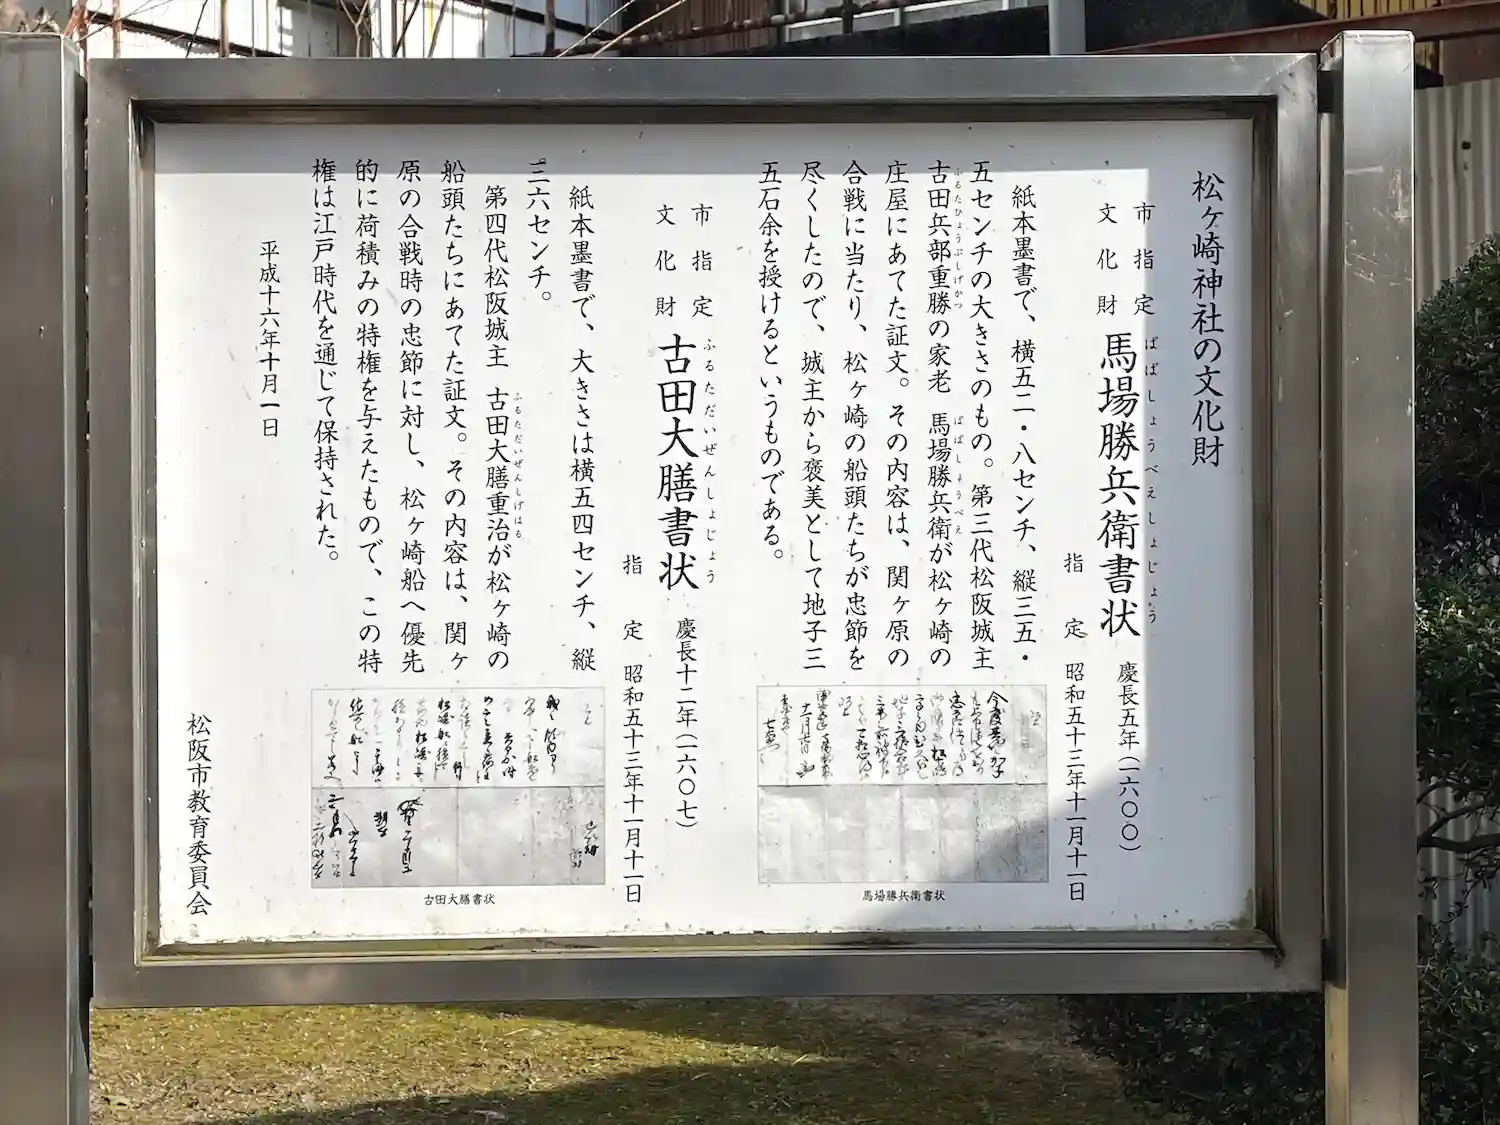 松ヶ崎神社の文化財
市指定
文化財
馬場勝兵衛書状
ばばしょうべえしょじょう
慶長五年(一六〇〇)
指定 昭和五十三年十一月十一日
紙本墨書で、横五二・八センチ、縦三五・
五センチの大きさのもの。第三代松阪城主
古田兵部重勝の家老 馬場勝兵衛が松ヶ崎の
ふるたひょうぶしげかつ
ばばしょうべえ
庄屋にあてた証文。その内容は、関ヶ原の
合戦に当たり、松ヶ崎の船頭たちが忠節を
尽くしたので、城主から褒美として地子三
五石余を授けるというものである。
馬場勝兵衛書状
市指定
文化財
古田大膳書状
ふるただいぜんしょじょう
慶長十二年(一六〇七)
指定 昭和五十三年十一月十一日
紙本墨書で、大きさは横五四センチ、縦
三六センチ。
第四代松阪城主 古田大膳重治が松ヶ崎の
ふるただいぜんしげはる
船頭たちにあてた証文。その内容は、関ヶ
原の合戦時の忠節に対し、松ヶ崎船へ優先
的に荷積みの特権を与えたもので、この特
権は江戸時代を通じて保持された。
古田大膳書状
平成十六年十月一日
松阪市教育委員会